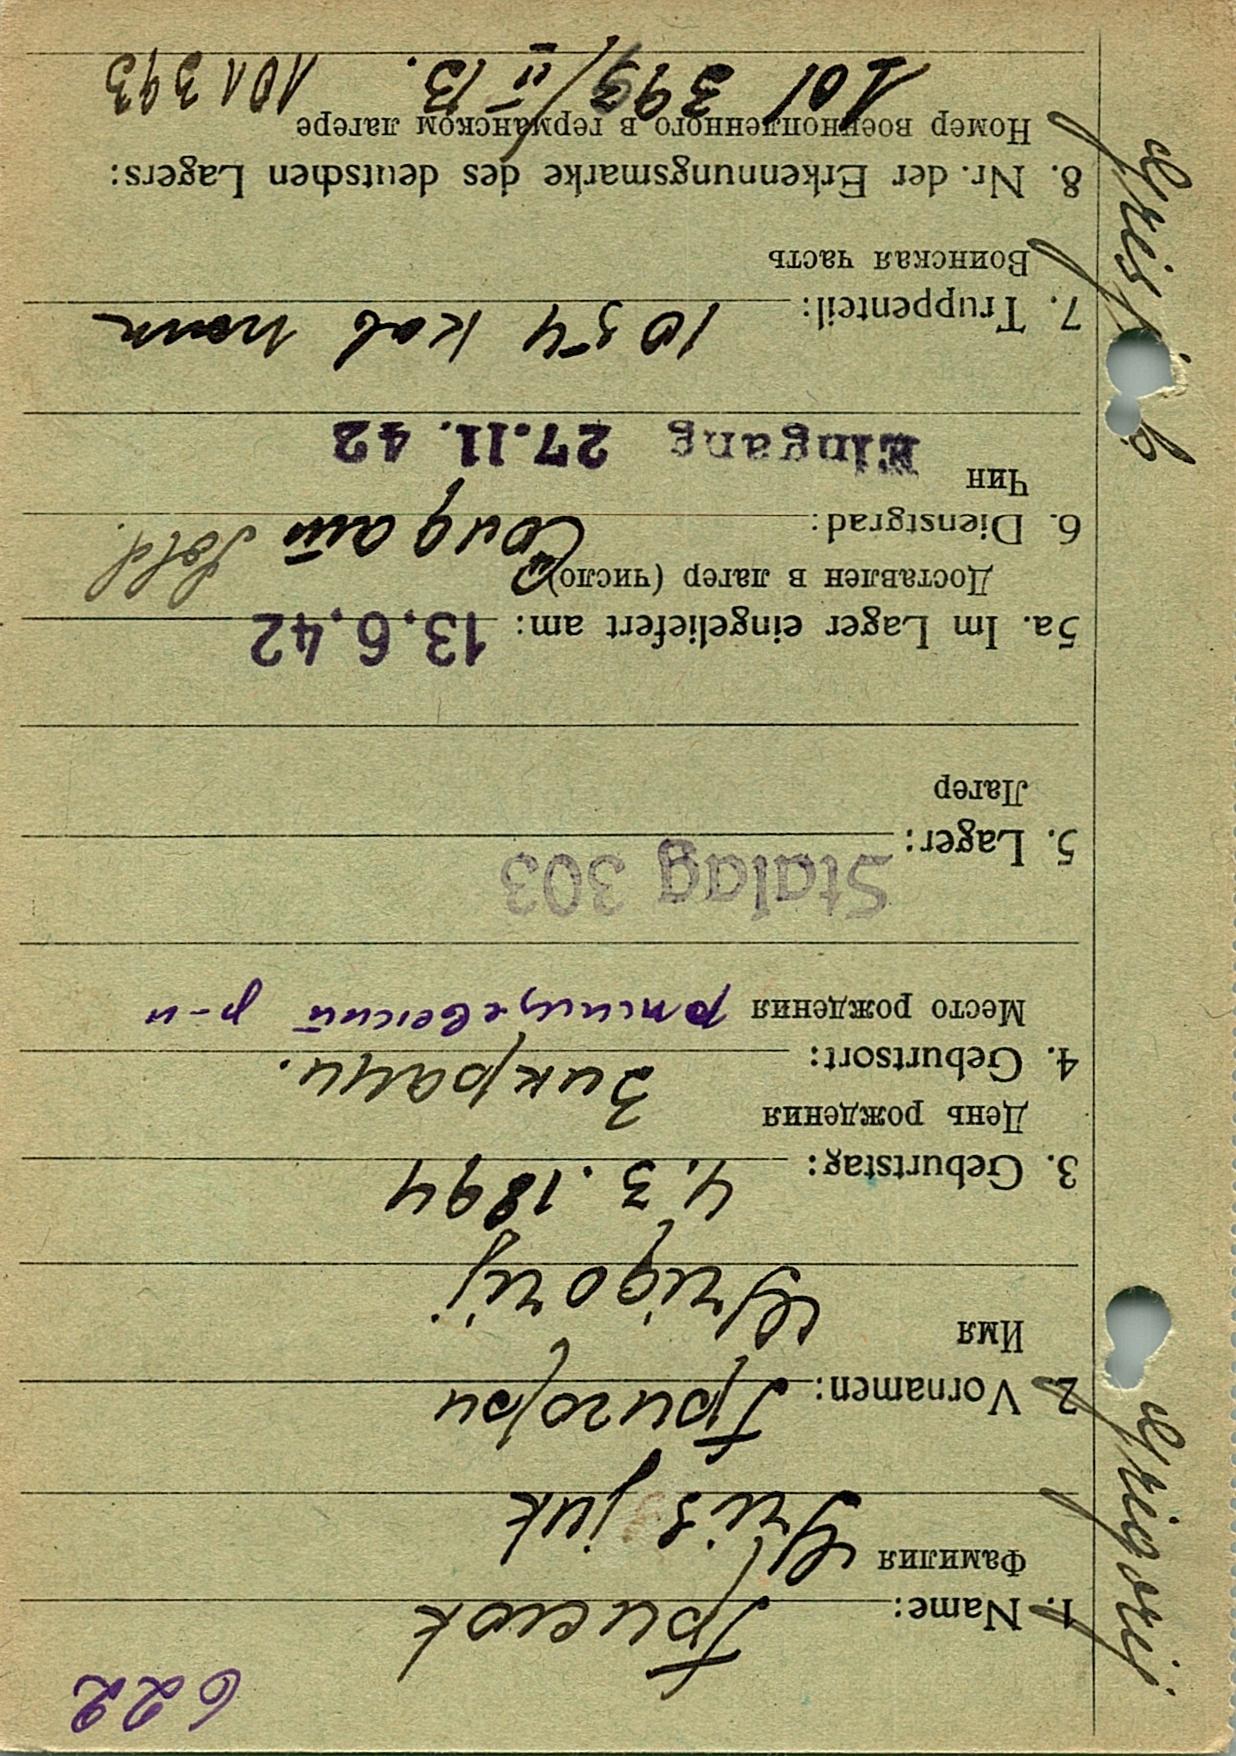 622
1. Name: Грисюк
Фамилия Grisjuk
2. Vornamen: Григори
Имя Grigorij
3. Geburtstag: 4.3.1894
День рождения
4. Geburtsort:
Место рождения р-н
5. Lager: Stalag 303
Лагер
5a. Im Lager eingeliefert am: 13.6.42
Доставлен в лагер (число)
6. Dienstgrad: Солдат Sold.
Чин Eingang 27.11.42
7. Truppenteil: 1054 кав
Воинская часть
8. Nr. der Erkennungsmarke des deutschen Lagers:
Номер военнопленного в германском лагере
101 393/II B. 101393
Grigorij
Grisjuk